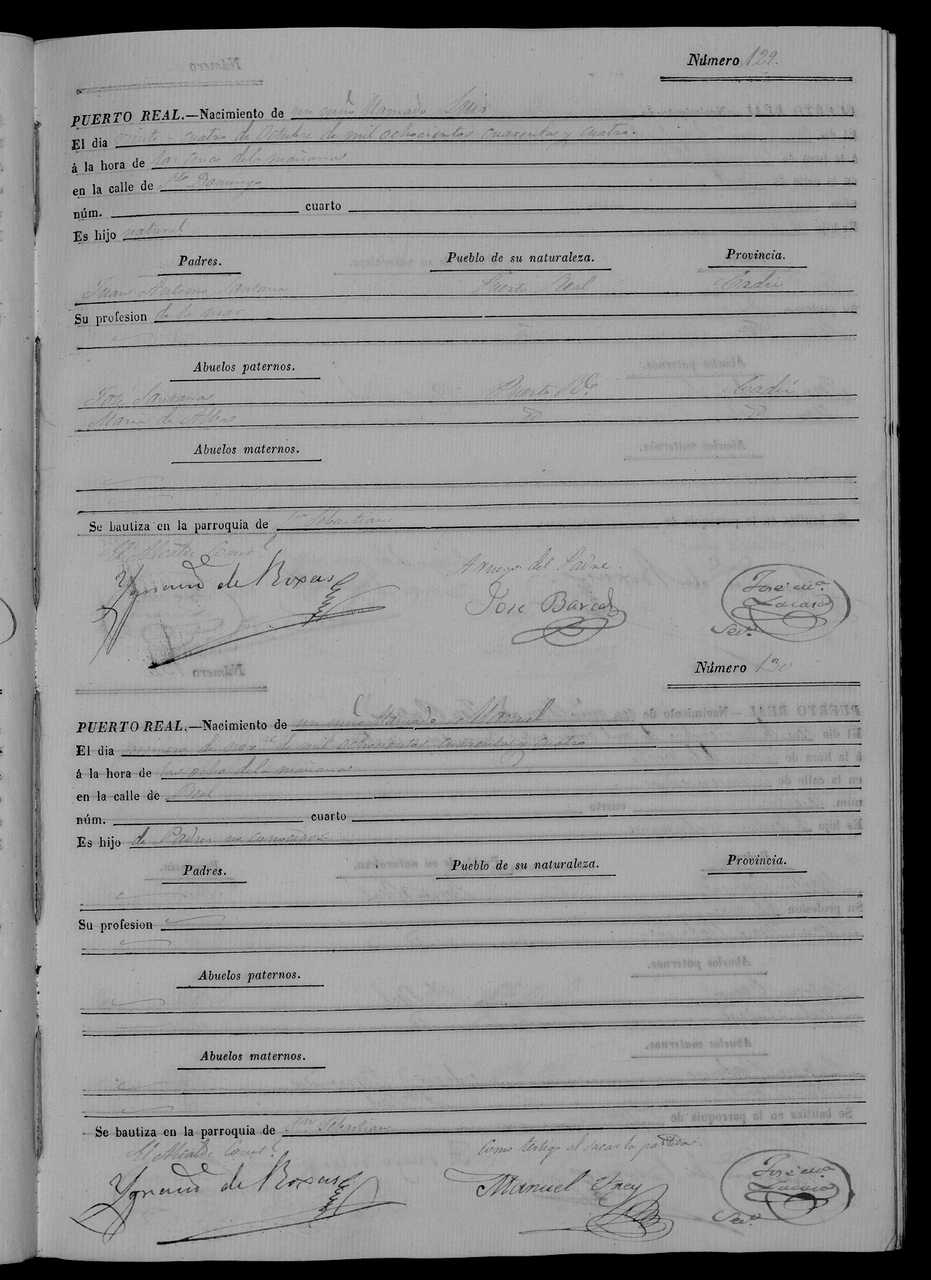 Número 129.
PUERTO REAL.—Nacimiento de un niño llamado Luis
El dia veinte y cuatro de Octubre de mil ochocientos cuarenta y cuatro.
á la hora de las once de la mañana
en la calle de Sto. Domingo
núm. cuarto
Es hijo natural
Padres. Pueblo de su naturaleza. Provincia.
Juan Antonio Santana Puerto Real Cadiz
Su profesion de la mar
Abuelos paternos.
José Santana Puerto Rl. Cadiz
Maria de Alba
Abuelos maternos.
Se bautiza en la parroquia de Sn. Sebastian
El Alcalde Const.l Arruego del Padre
Ygnacio de Roxas José Barca José Ma.
Secr.o
Número 130
PUERTO REAL.—Nacimiento de un niño llamado Manuel
El dia primero de Nov.e de mil ochocientos cuarenta y cuatro
á la hora de las ocho de la mañana
en la calle de Real
núm. cuarto
Es hijo de Padres no conocidos
Padres. Pueblo de su naturaleza. Provincia.
Su profesion
Abuelos paternos.
Abuelos maternos.
Se bautiza en la parroquia de Sn. Sebastian
El Alcalde Const.l Como testigo al sacar la partida
Ygnacio de Roxas Manuel José Ma.
Secr.o